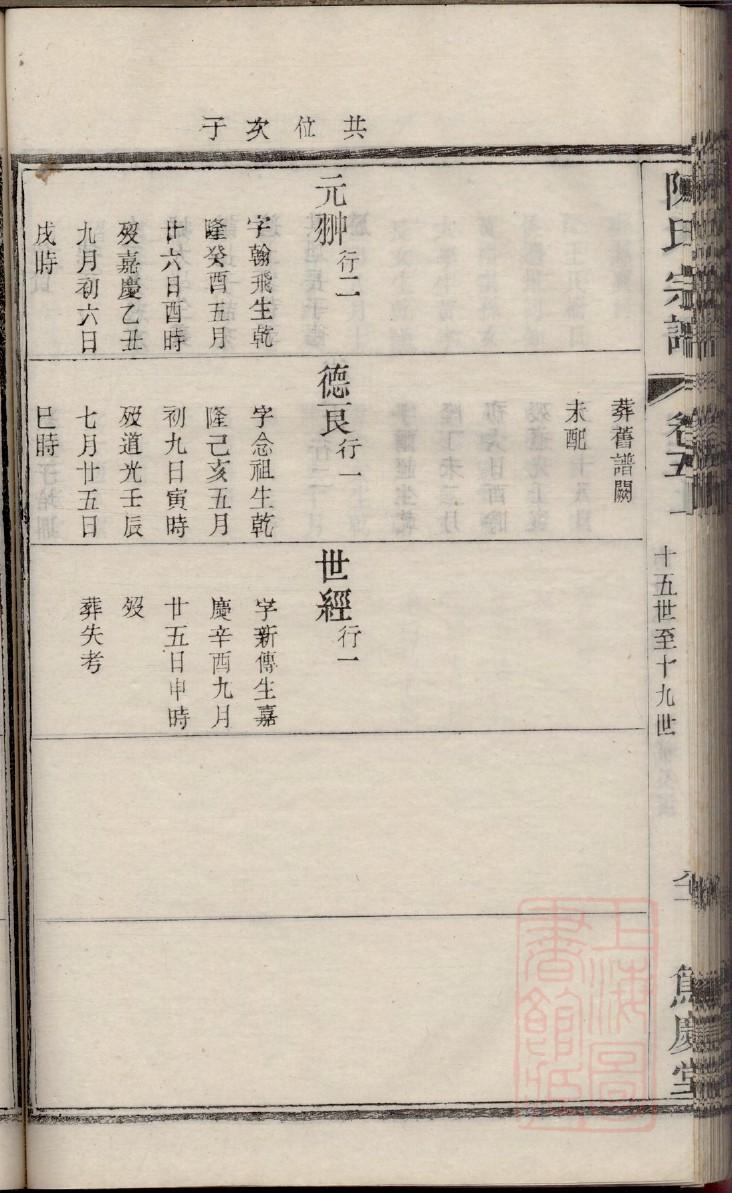 共位次于
元翀行二
字翰飛生乾
隆癸酉五月
廿六日酉時
歿嘉慶乙丑
九月初六日
戌時
葬舊譜闕
未配
德良行一
字念祖生乾
隆己亥五月
初九日寅時
歿道光壬辰
七月廿五日
巳時
世經行一
字新傳生嘉
慶辛酉九月
廿五日申時
歿
葬失考
陳氏宗譜
卷五上
十五世至十九世
篤慶堂
上海圖
書館藏